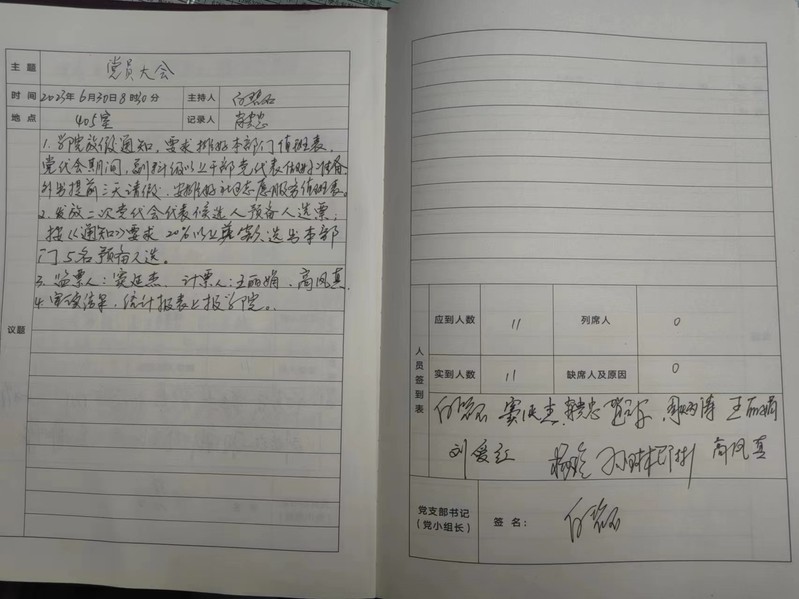 主 题 党员大会
时 间 2023年6月30日8时30分 主持人
地 点 405室 记录人
议题
1. 学院放假通知，要求排好本部门值班表。
党代会期间，副科级以上干部党代表
外出提前三天请假，安排好社团志愿服务值班表。
2. 发放二次党代会代表候选人预备人选票，
按《通知》要求20%以上差额选出本部
门5名预备人选。
3. 监票人：窦廷杰、计票人：王丽娟、高凤真
4. 审议结果，统计报表上报学院。
人员签到表
应到人数 11 列席人 0
实到人数 11 缺席人及原因 0
王丽娟
刘爱红 高凤真
党支部书记
（党小组长） 签 名：